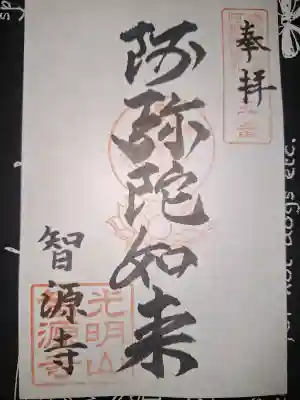 奉拝
阿弥陀如来
智源寺
光明山
智源寺
for hot dogs etc.